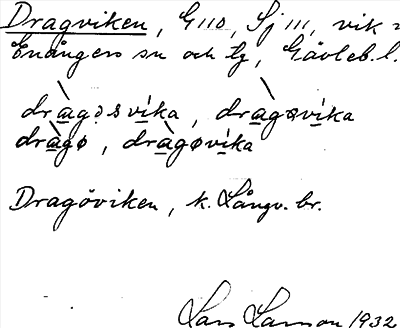 Dragviken, G110, Sj 111, vik
Enångers sn och tg, Gävleb. l.
dragøsvika, dragøsvika
dragø, dragøvika
Dragöviken, k. Långv. br.
Lars Larsson 1932